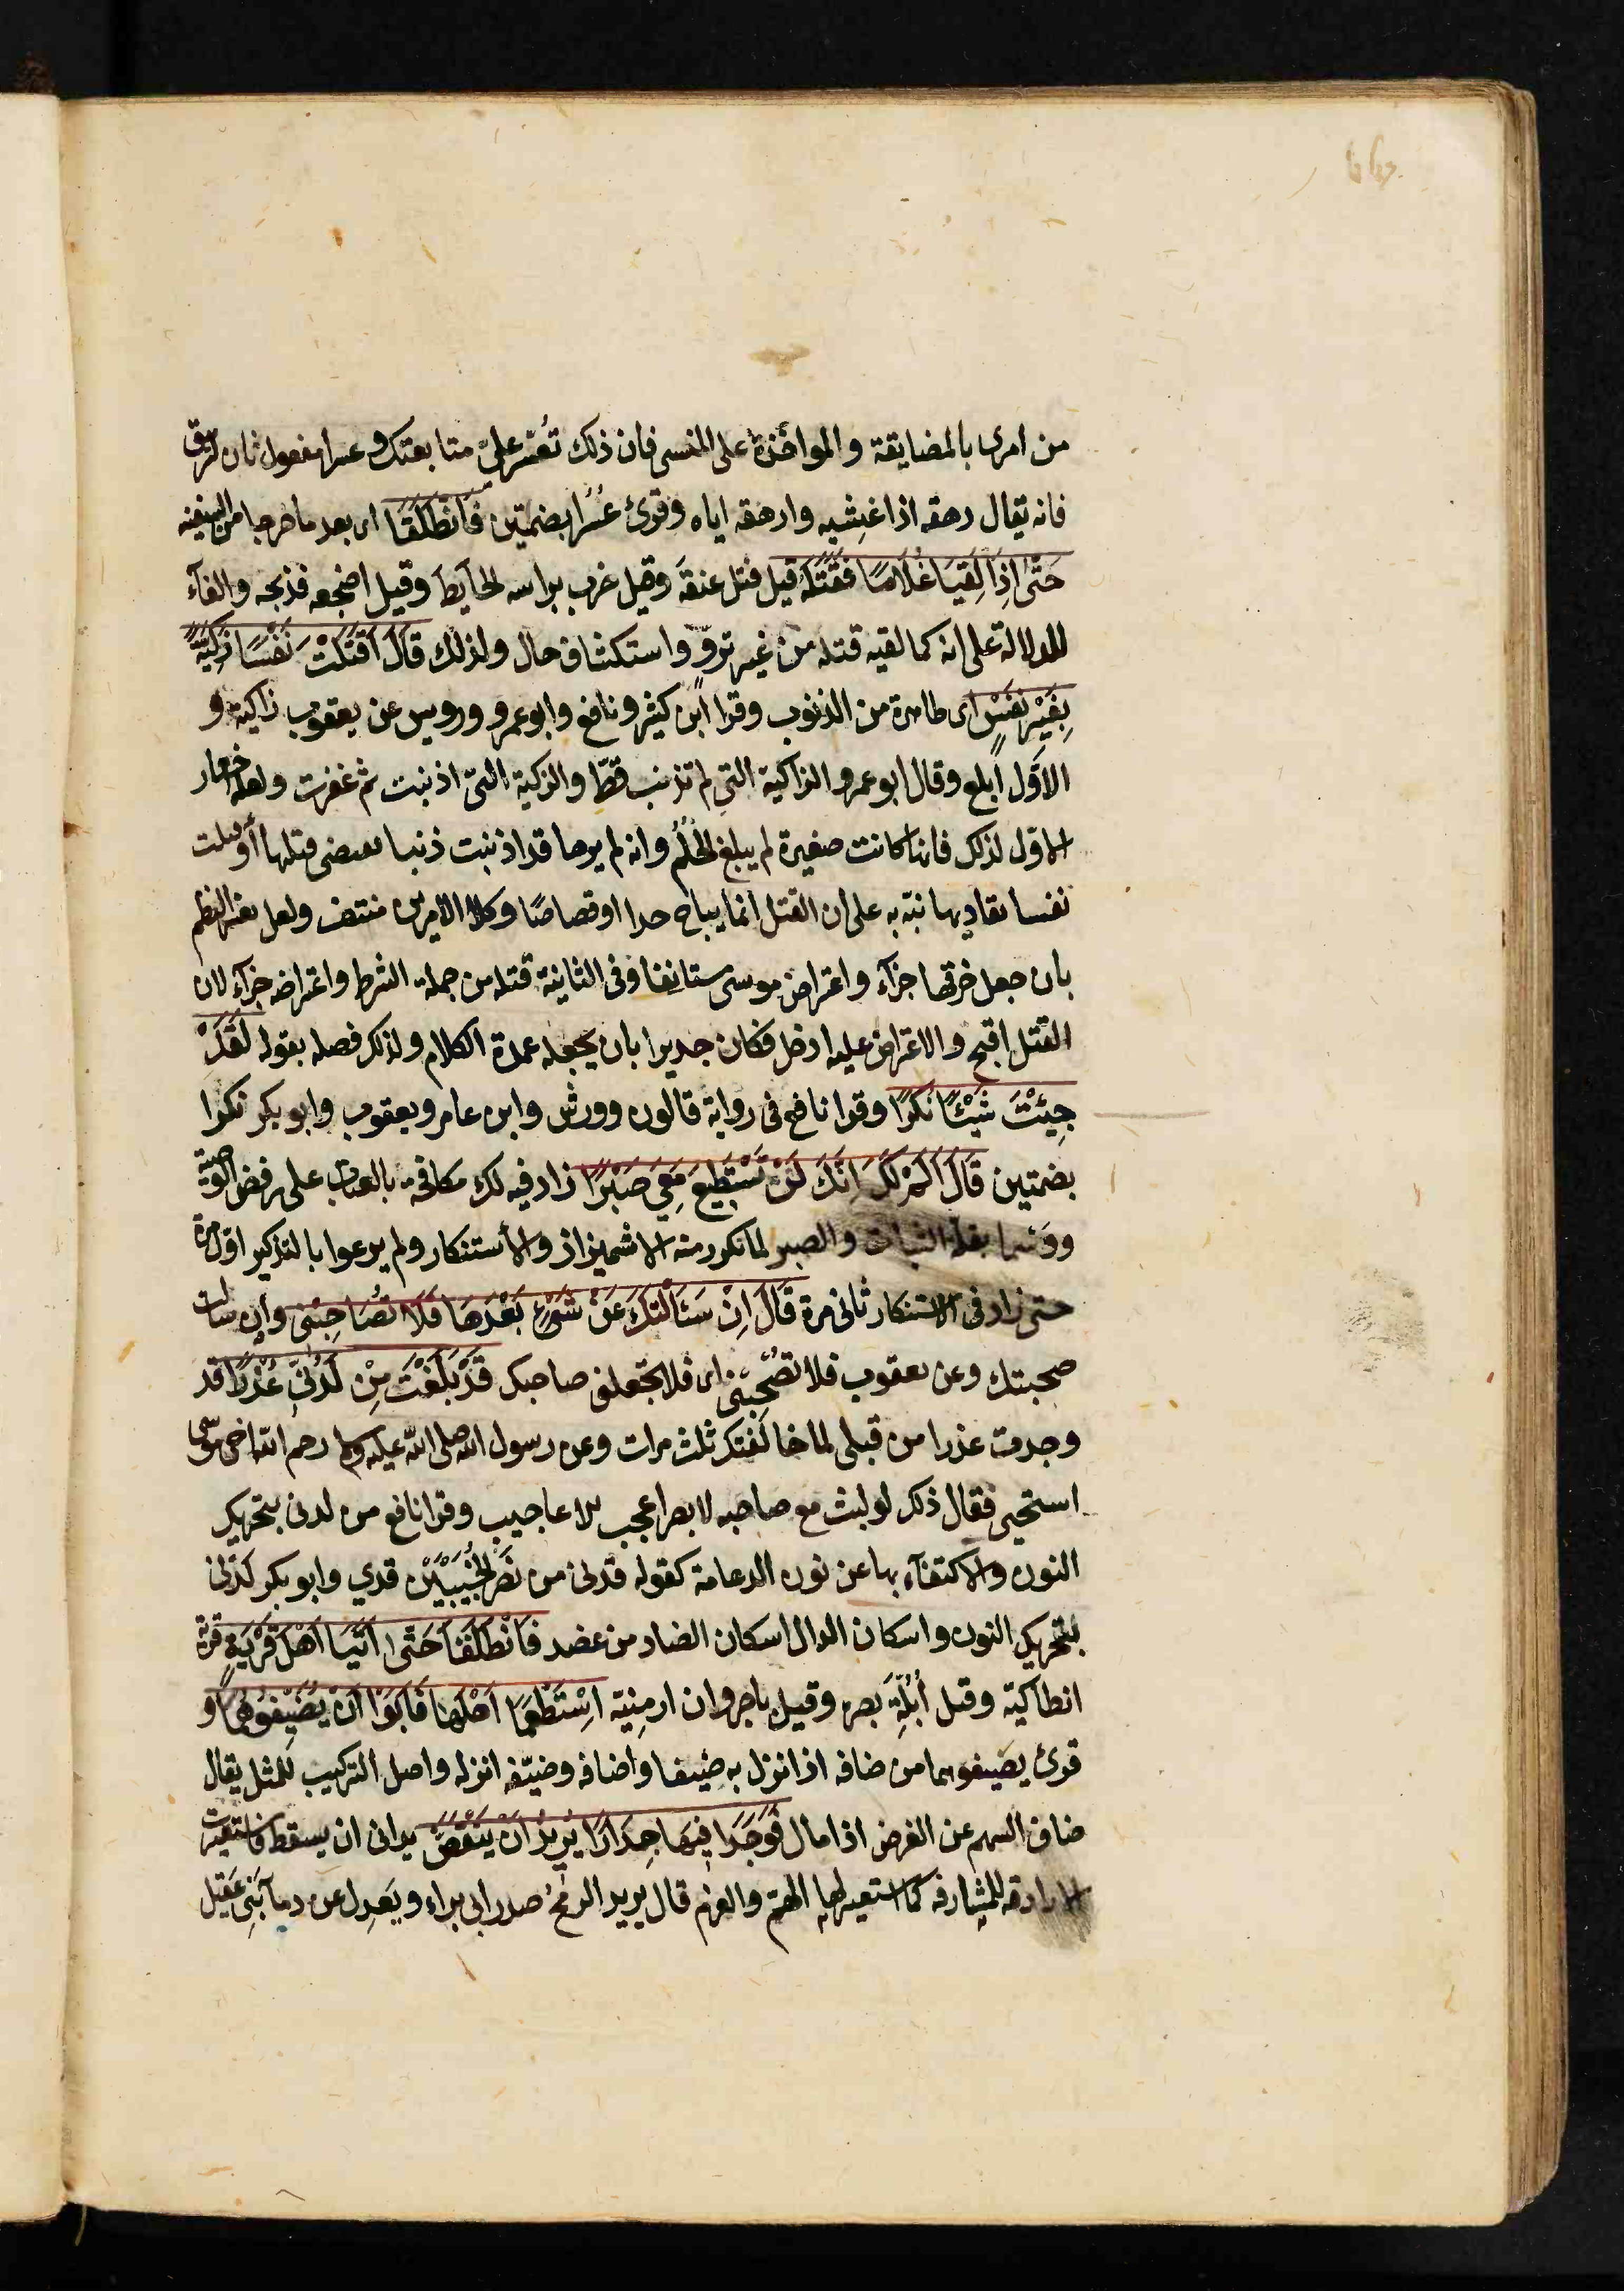 من امرى بالمضايقة والمواخذة على المنسى فان ذلك تُعسّر علىّ متابعتك و عسرا مفعول ثان لترهق
فانه يقال رهقه اذا غشيه وارهقه اياه وقرئ عُسُرا بضمتين فَانْطَلَقَا اى بعد ما خرجا من السفينه
حَتّى اِذَا لَقِيَا غُلَامًا فَقَتَلَهُ قيل فتل عنقَه وقيل ضرب براسه الحايط وقيل اضجعه فذبحه والفآء
للدلالة على انه كما لقيه قتله من غير تروّ واستكشاف حال ولذلك قَالَ اَقَتَلْتَ نَفْسًا زَكِيَّةً
بِغَيْرِ نَفْسٍ اى طاهرة من الذنوب وقرا ابن كثير ونافع وابوعمرو ورويس عن يعقوب زاكية و
الاوّل ابلغ وقال ابو عمرو الزاكية التى لم تذنب قطّ والزكية التى اذنبت ثم غفرت ولعله اختار
الاوّل لذلك فانها كانت صغيرة لم يبلغ الحُلُم وانه لم يرها قد اذنبت ذنبا يقتضى قتلها أو قتلت
نفسا تقاد بها نبّه به على ان القتل انما يباح حدا او قصاصًا وكلا الامرين منتف ولعل تغيير النظم
بان جعل خرقها جزآء واعتراض موسى مستانفا وفى الثانية قتله من جملة الشرط واعتراضه جزآء لان
القتل اقبح والاعتراض عليه ادخل فكان جديرا بان يجعله عمدة الكلام ولذلك فصله بقوله لَقَدْ
جِئْتَ شَيْئًا نُكْرًا وقرا نافع فى رواية قالون وورش وابن عامر ويعقوب وابو بكر نكرا
بضمتين قَالَ اَلَمْ اَقُلْ لَكَ اِنَّكَ لَنْ تَسْتَطِيعَ مَعِىَ صَبْرًا زاد فيه لك مكافحة بالعتاب على رفض الوصية
ووسما بقلة الثبات والصبر لما تكرر منه الاشميزاز والأستنكار ولم يرعوا بالتذكير اوّل مرة
حتى زاد فى الاستنكار ثانى مرة قَالَ اِنْ سَئَالْتُكَ عَنْ شَىْءٍ بَعْدَهَا فَلَا تُصَاحِبْنِى وان سالت
صحبتك وعن يعقوب فلا تُصْحِبْنى اى فلا تجعلنى صاحبك قَدْ بَلَغْتَ مِنْ لَدُنِّى عُذْرًا قد
وجدت عذرا من قبلى لما خالفتك ثلث مرات وعن رسول الله صلى الله عليه وسلم رحم الله اخى موسى
استحيى فقال ذلك لو لبث مع صاحبه لابصر اعجب الاعاجيب وقرا نافع من لدنى بتحريك
النون والاكتفآء بها عن نون الدعامة كقوله قدنى من نَصْرِ الخُبَيْبَيْنِ قدي وابو بكر لَدْنى
بتحريك النون واسكان الدال اسكان الضاد من عضد فَانْطَلَقَا حَتّى اِذَا اَتَيَا اَهْلَ قَرْيَةٍ قرية
انطاكية وقيل أُبُلّة بصرة وقيل باجروان ارمنية اِسْتَطْعَمَا اَهْلَهَا فَاَبَوْا اَنْ يُضَيِّفُوهُمَا و
قرئ يضيفوهما من ضافه اذا نزل به ضيفا واضافه وضيّفه انزله واصل التركيب للمثل يقال
ضاف السهم عن الغرض اذا مال فَوَجَدَا فِيهَا جِدَارًا يُرِيدُ اَنْ يَنْقَضَّ يدانى ان يسقط فاستعيرت
الارادة للمشارفة كما استعير لها الهمّ والعزم قال يريد الرمحُ صدر ابى براء ويَعدِل عن دمآء بَنِى عَقِيل